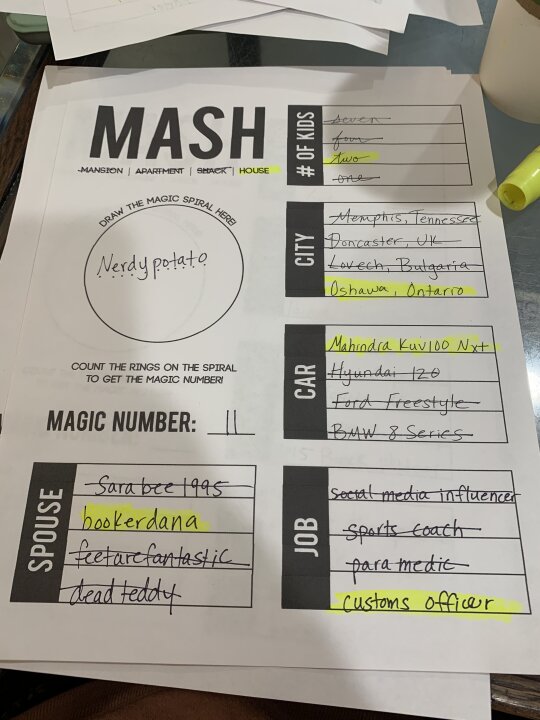 MASH
MANSION | APARTMENT | SHACK | HOUSE
DRAW THE MAGIC SPIRAL HERE!
Nerdypotato
COUNT THE RINGS ON THE SPIRAL
TO GET THE MAGIC NUMBER!
MAGIC NUMBER: 11
# OF KIDS
seven
four
two
one
CITY
Memphis, Tennessee
Doncaster, UK
Lovech, Bulgaria
Oshawa, Ontario
CAR
Mahindra Kuv100 Nxt
Hyundai i20
Ford Freestyle
BMW 8 Series
SPOUSE
Sarabee1995
hookerdana
feetarefantastic
deadteddy
JOB
social media influencer
sports coach
paramedic
customs officer